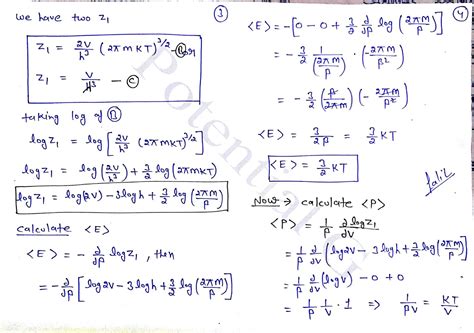 we have two Z₁
③
Z₁ = 2V/h³ (2πmKT)^3/2 - Ⓑ
Z₁ = V/Ƚ³ - Ⓒ
taking log of Ⓑ
logZ₁ = log[2V/h³ (2πmKT)^3/2]
logZ₁ = log(2V/h³) + 3/2 log(2πmKT)
logZ₁ = log(2V) - 3logh + 3/2 log(2πM/β)
calculate <E>
<E> = - ∂/∂β logZ₁, then
= - ∂/∂β [log2V - 3logh + 3/2 log(2πM/β)]
④
<E> = -[0 - 0 + 3/2 ∂/∂β log(2πM/β)]
= - 3/2 1/(2πM/β) · (-2πM/β²)
= - 3/2 (β/2πM) (- 2πM/β²)
<E> = 3/2β = 3/2 KT
<E> = 3/2 KT
Now → calculate <P>
<P> = 1/β ∂logZ₁/∂V
= 1/β ∂/∂V (log2V - 3logh + 3/2 log(2πM/β))
= 1/β ∂/∂V (logV) - 0 + 0
= 1/β 1/V · 1 ⇒ 1/βV = KT/V
Potential G